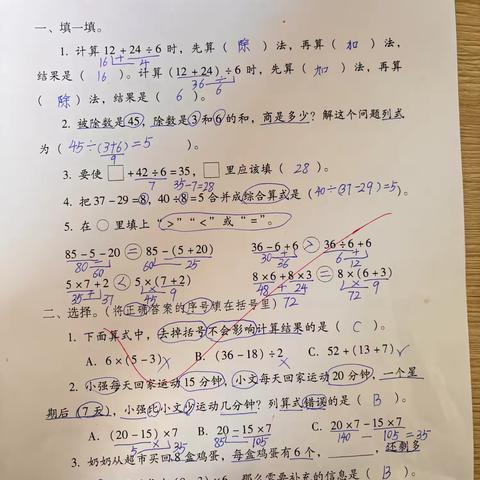 一、填一填。
1. 计算 12 + 24 ÷ 6 时，先算（ 除 ）法，再算（ 加 ）法，
16 4
结果是（ 16 ）。计算（12 + 24）÷ 6 时，先算（ 加 ）法，再算
36 6
（ 除 ）法，结果是（ 6 ）。
2. 被除数是 45，除数是 3 和 6 的和，商是多少？解这个问题列式
为（ 45÷(3+6)=5 ）。
9
3. 要使 □ + 42 ÷ 6 = 35，□ 里应该填（ 28 ）。
7 35-7=28
4. 把 37 − 29 = 8，40 ÷ 8 = 5 合并成综合算式是（ 40÷(37-29)=5 ）。
5. 在 ○ 里填上“ > ”“ < ”或“ = ”。
85 − 5 − 20 = 85 −（5 + 20） 36 − 6 + 6 > 36 ÷ 6 + 6
80 60 60 25 30 36 6 12
5 × 7 + 2 < 5 ×（7 + 2） 8 × 6 + 8 × 3 = 8 ×（6 + 3）
35 37 45 9 48 24 72 72 9
二、选择。（将正确答案的序号填在括号里）
1. 下面算式中，去掉括号不会影响计算结果的是（ C ）。
A. 6 ×（5 − 3）× B. （36 − 18）÷ 2 × C. 52 +（13 + 7）✓
2. 小强每天回家运动 15 分钟，小文每天回家运动 20 分钟，一个星
期后（7 天），小强比小文少运动几分钟？列算式错误的是（ B ）。
A. （20 − 15）× 7 B. 20 − 15 × 7 C. 20 × 7 − 15 × 7
5 35 85 105 140 105 = 35
3. 奶奶从超市买回 8 盒鸡蛋，每盒鸡蛋有 6 个，______，还剩多
那么需要补充的信息是（ B ）。